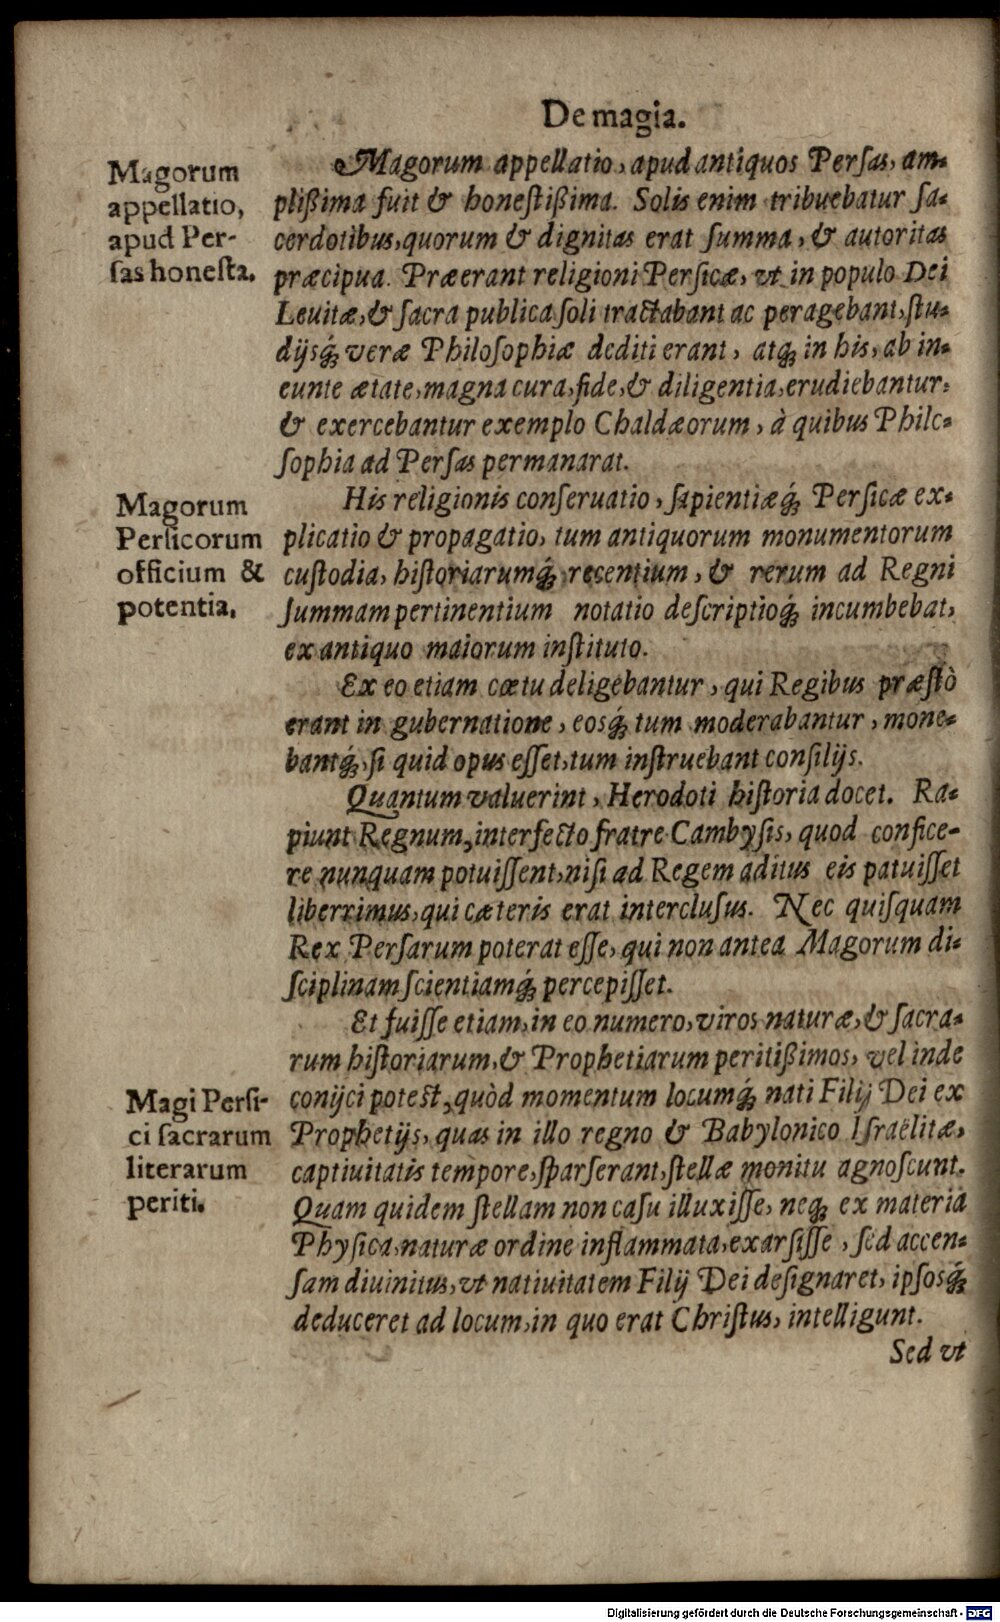 De magia.
Magorum
appellatio,
apud Per-
sas honesta.
Magorum appellatio, apud antiquos Persas, am-
plißima fuit & honestißima. Solis enim tribuebatur sa-
cerdotibus, quorum & dignitas erat summa, & autoritas
præcipua. Præerant religioni Persicæ, vt in populo Dei
Leuitæ, & sacra publica soli tractabant ac peragebant, stu-
dijsq́; veræ Philosophiæ dediti erant, atq́; in his, ab in-
eunte ætate, magna cura, fide, & diligentia, erudiebantur:
& exercebantur exemplo Chaldæorum, à quibus Philo-
sophia ad Persas permanarat.
Magorum
Persicorum
officium &
potentia.
His religionis conseruatio, sapientiæq́; Persicæ ex-
plicatio & propagatio, tum antiquorum monumentorum
custodia, historiarumq́; recentium, & rerum ad Regni
summam pertinentium notatio descriptioq́; incumbebat,
ex antiquo maiorum instituto.
Ex eo etiam cœtu deligebantur, qui Regibus præstò
erant in gubernatione, eosq́; tum moderabantur, mone-
bantq́;, si quid opus esset, tum instruebant consilijs.
Quantum valuerint, Herodoti historia docet. Ra-
piunt Regnum, interfecto fratre Cambysis, quod confice-
re nunquam potuissent, nisi ad Regem aditus eis patuisset
liberrimus, qui cæteris erat interclusus. Nec quisquam
Rex Persarum poterat esse, qui non antea Magorum di-
sciplinam scientiamq́; percepisset.
Et fuisse etiam, in eo numero, viros naturæ, & sacra-
rum historiarum, & Prophetiarum peritißimos, vel inde
Magi Persi-
ci sacrarum
literarum
periti.
conijci potest, quòd momentum locumq́; nati Filij Dei ex
Prophetijs, quas in illo regno & Babylonico Israëlitæ,
captiuitatis tempore, sparserant, stellæ monitu agnoscunt.
Quam quidem stellam non casu illuxisse, neq; ex materia
Physica, naturæ ordine inflammata, exarsisse, sed accen-
sam diuinitus, vt natiuitatem Filij Dei designaret, ipsosq́;
deduceret ad locum, in quo erat Christus, intelligunt.
Sed vt
Digitalisierung gefördert durch die Deutsche Forschungsgemeinschaft - DFG